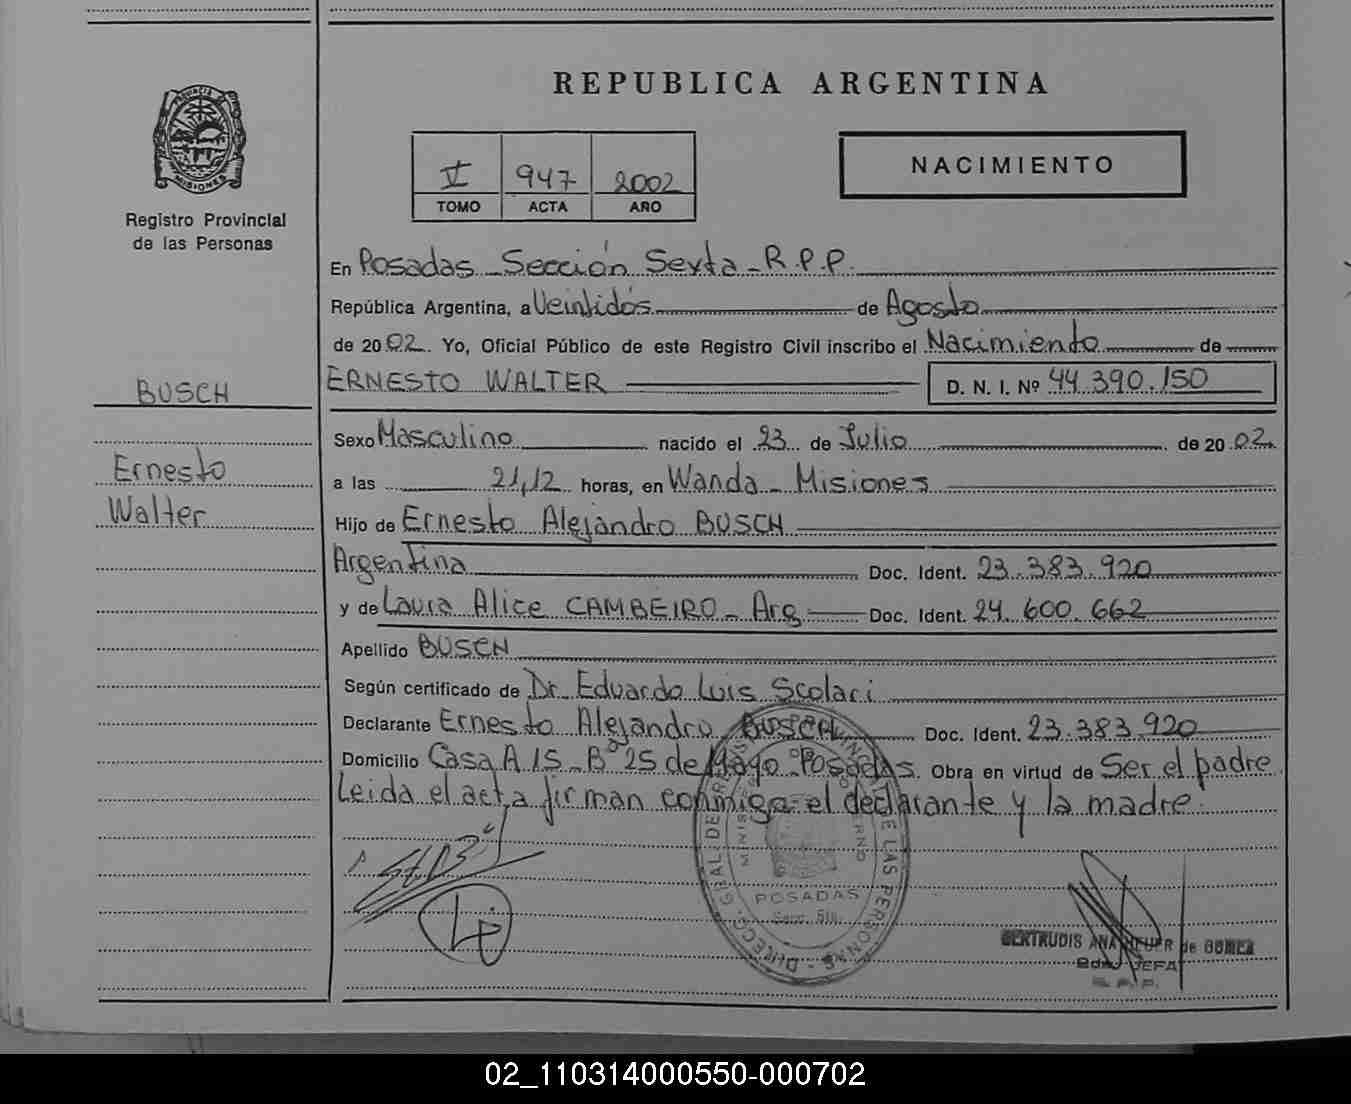 REPUBLICA ARGENTINA
PROVINCIA DE
MISIONES
Registro Provincial
de las Personas
V 947 2002
TOMO ACTA AÑO
NACIMIENTO
En Posadas - Sección Sexta - R.P.P.
República Argentina, a Veintidós de Agosto
de 2002. Yo, Oficial Público de este Registro Civil inscribo el Nacimiento de
ERNESTO WALTER D. N. I. Nº 44.390.150
BUSCH
Ernesto
Walter
Sexo Masculino nacido el 23 de Julio de 2002
a las 21,12 horas, en Wanda - Misiones
Hijo de Ernesto Alejandro BUSCH
Argentina Doc. Ident. 23.383.920
y de Laura Alice CAMBEIRO - Arg Doc. Ident. 24.600.662
Apellido BUSCH
Según certificado de Dr. Eduardo Luis Scolari
Declarante Ernesto Alejandro BUSCH Doc. Ident. 23.383.920
Domicilio Casa A 15 - Bº 25 de Mayo - Posadas. Obra en virtud de Ser el padre
Leida el acta firman conmigo el declarante y la madre.
POSADAS
GERTRUDIS ANA de
JEFA
02_110314000550-000702